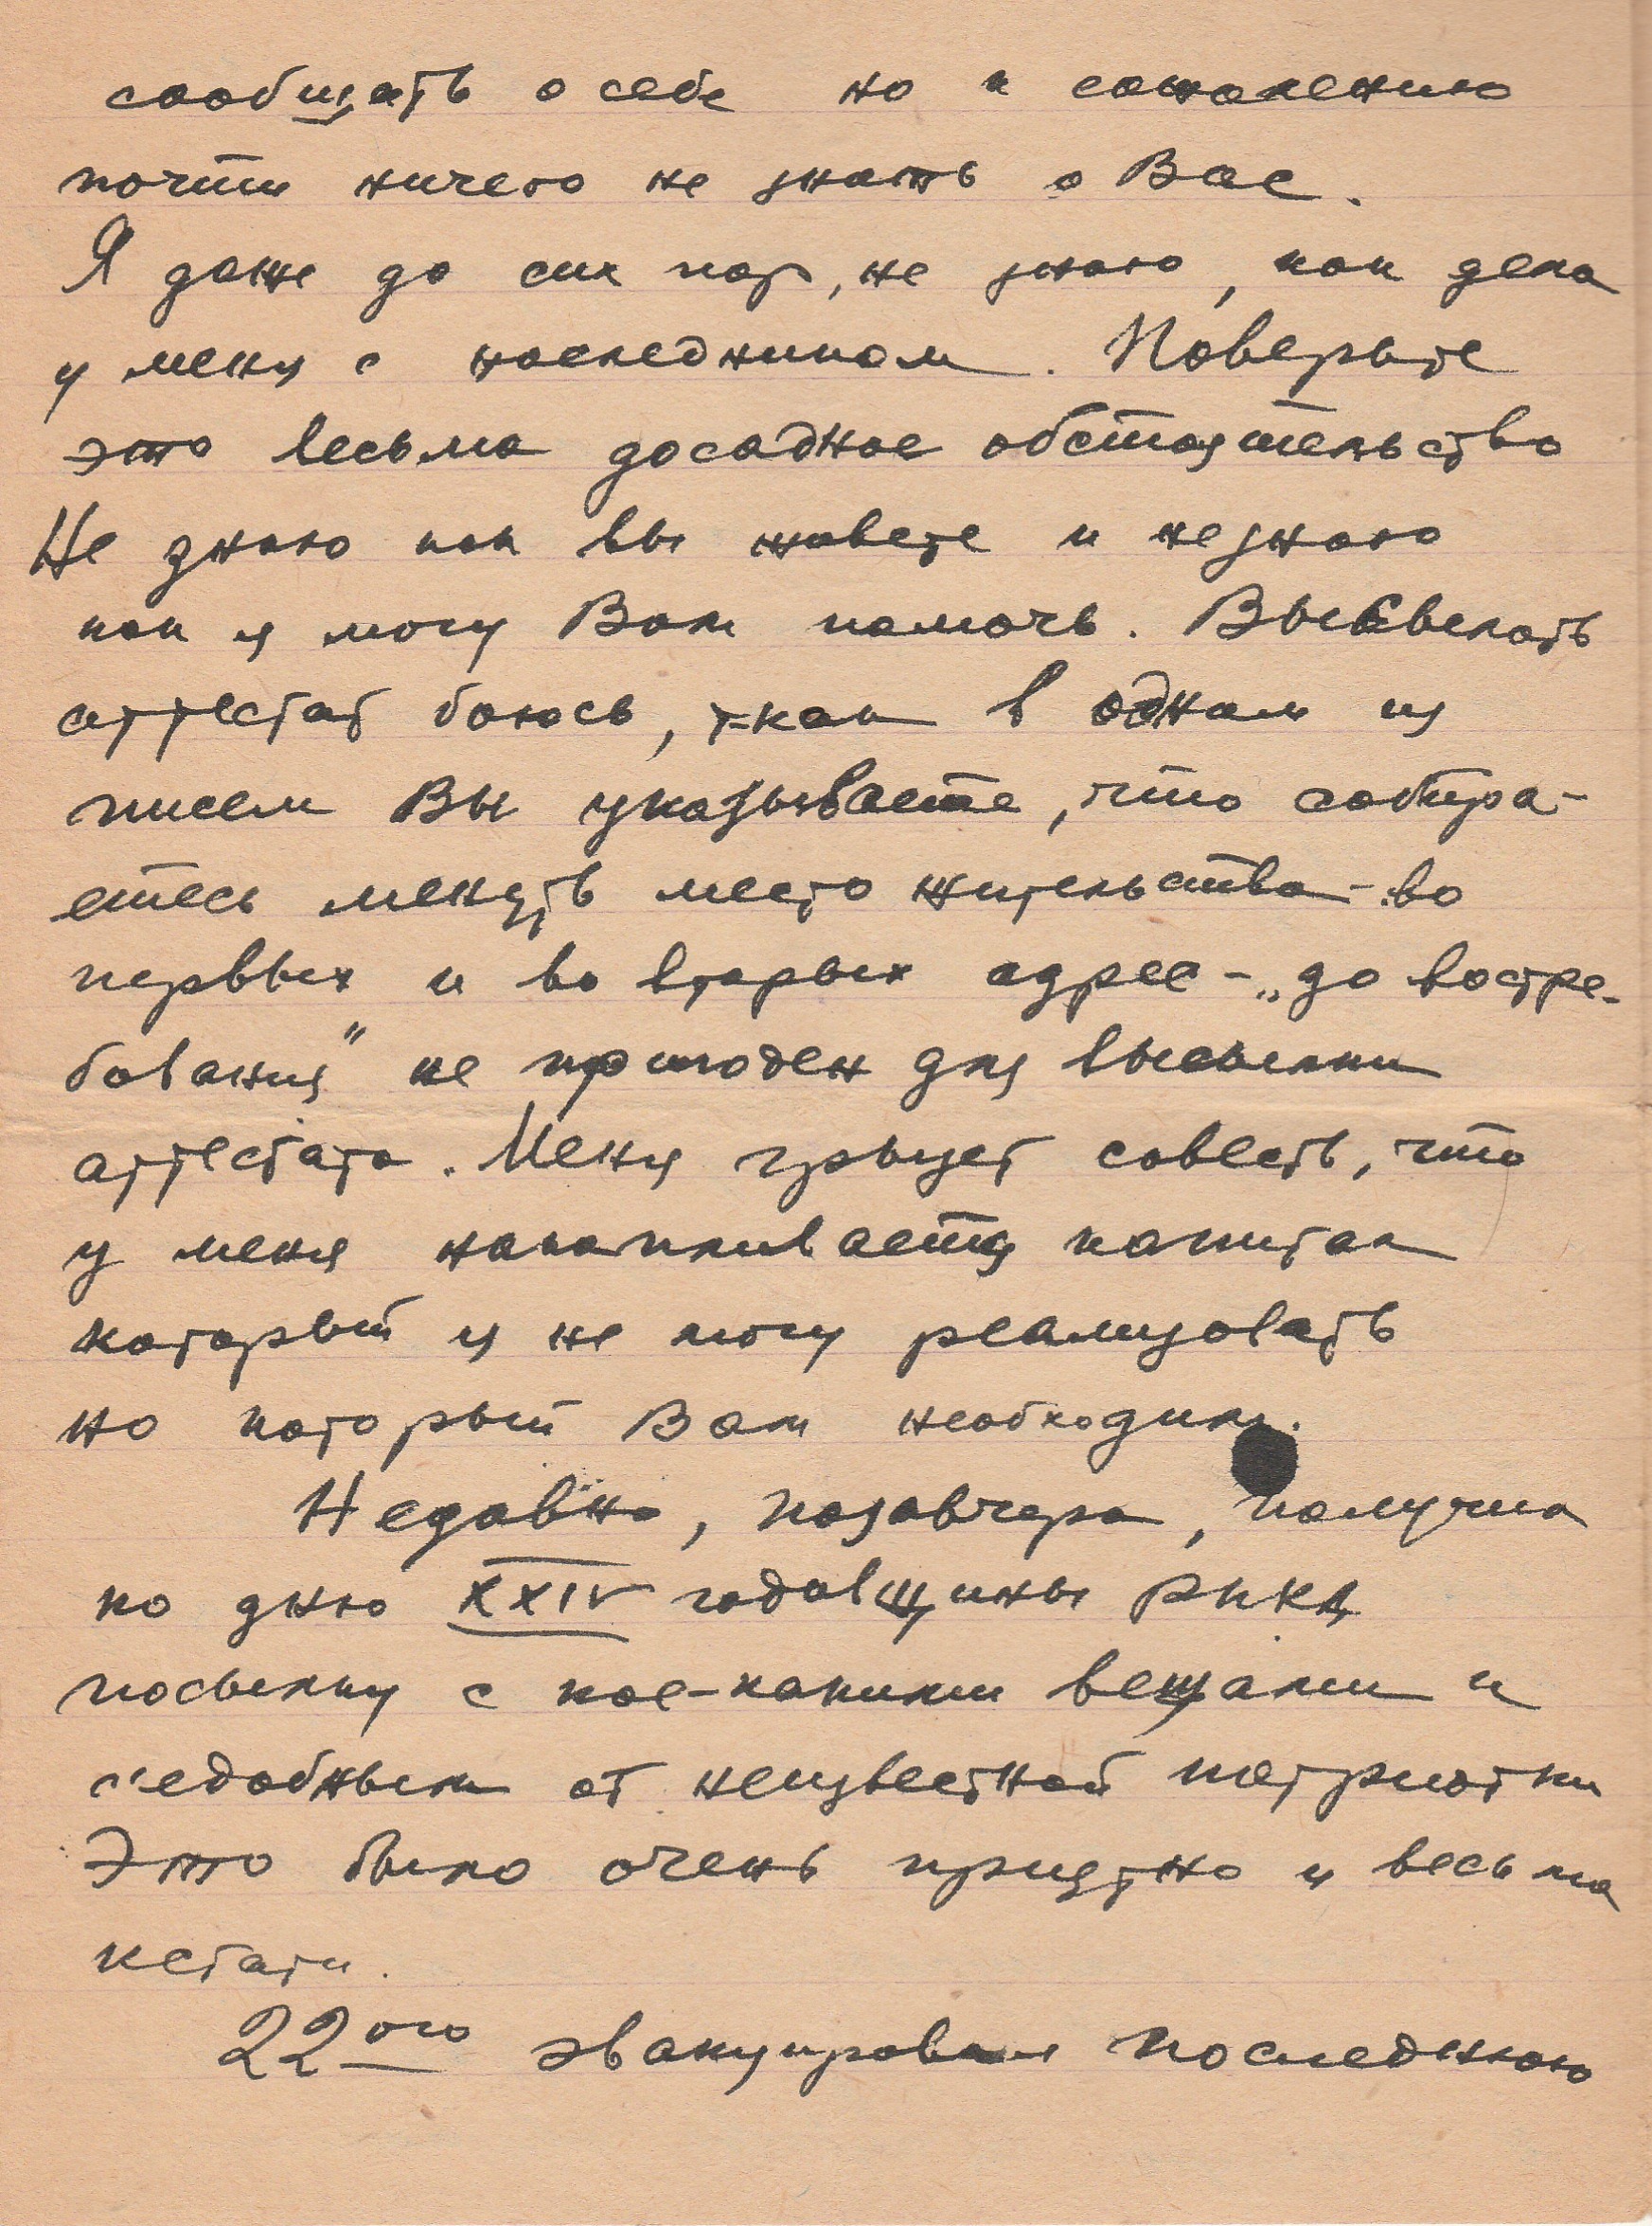 сообщать о себе но к сожалению
почти ничего не знать о Вас.
Я даже до сих пор, не знаю, как дела
у меня с наследником. Поверьте
это весьма досадное обстоятельство
Не знаю как вы живете и не знаю
как я могу Вам помочь. Высылать
аттестат боюсь, т-как в одном из
писем Вы указываете, что собира-
етесь менять место жительства - во
первых и во вторых адрес - „до востре-
бования" не пригоден для высылки
аттестата. Меня грызет совесть, что
у меня накапливается капитал
который я не могу реализовать
но который Вам необходим.
Недавно, позавчера, получил
ко дню XXIV годовщины РККА
посылку с кое-какими вещами и
съедобным от неизвестной патриотки
Это было очень приятно и весьма
кстати.
22ого эвакуировал последнюю